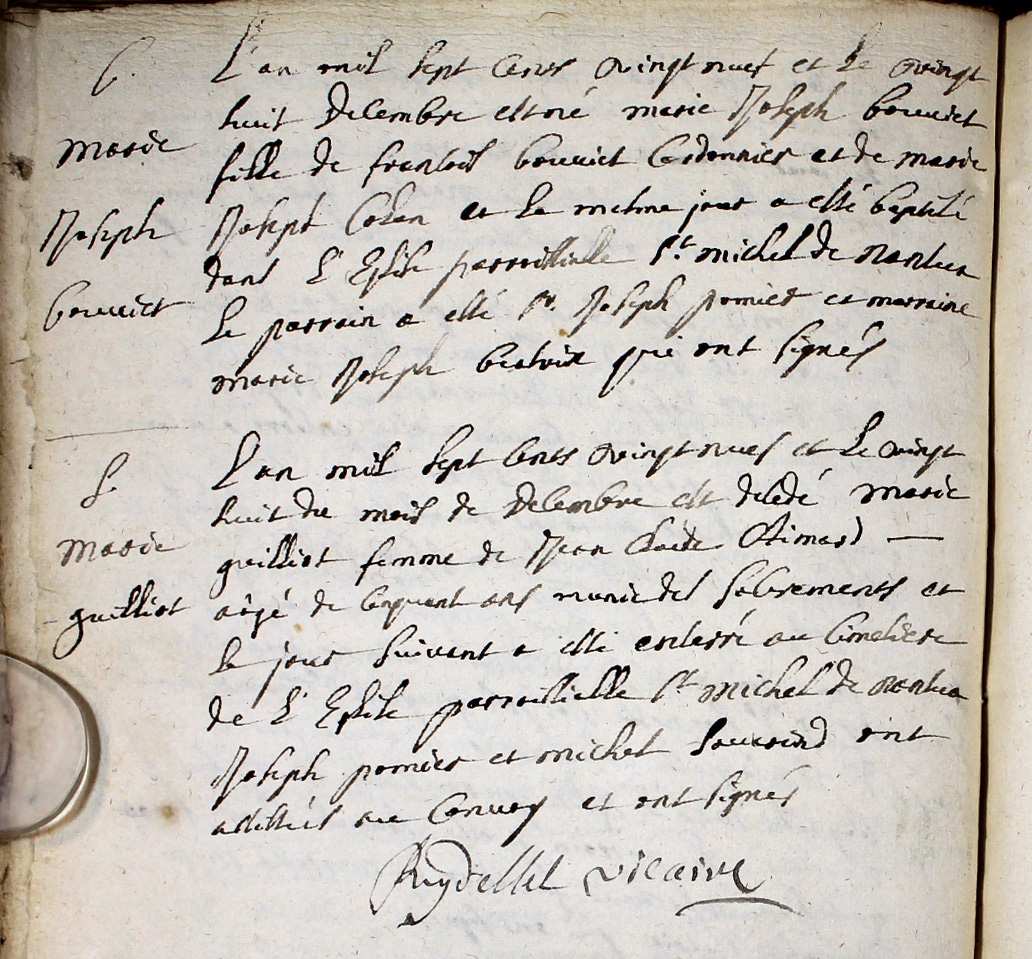 b.
Marie
Joseph
bouvict
L'an mil sept cens vingt neuf et le vingt
huit decembre est né marie Joseph bouvict
fille de francois bouvict Cordonnier et de marie
Joseph et le mesme jour a esté baptisé
dans l'Eglise parroissialle St. michel de nantua
le parrain a esté Sr. Joseph pomier et marraine
marie Joseph qui ont signés
S.
Marie
guilliot
L'an mil sept cents vingt neuf et le vingt
huit du mois de decembre est decedé marie
guilliot femme de Jean Claude
aagé de cinquant ans munie des sacrements et
le jour suivant a esté enterré au cimetiere
de l'Eglise parroissielle St. michel de nantua
Joseph pomier et michel ont
assistés au convoy et ont signés
Reydellet vicaire